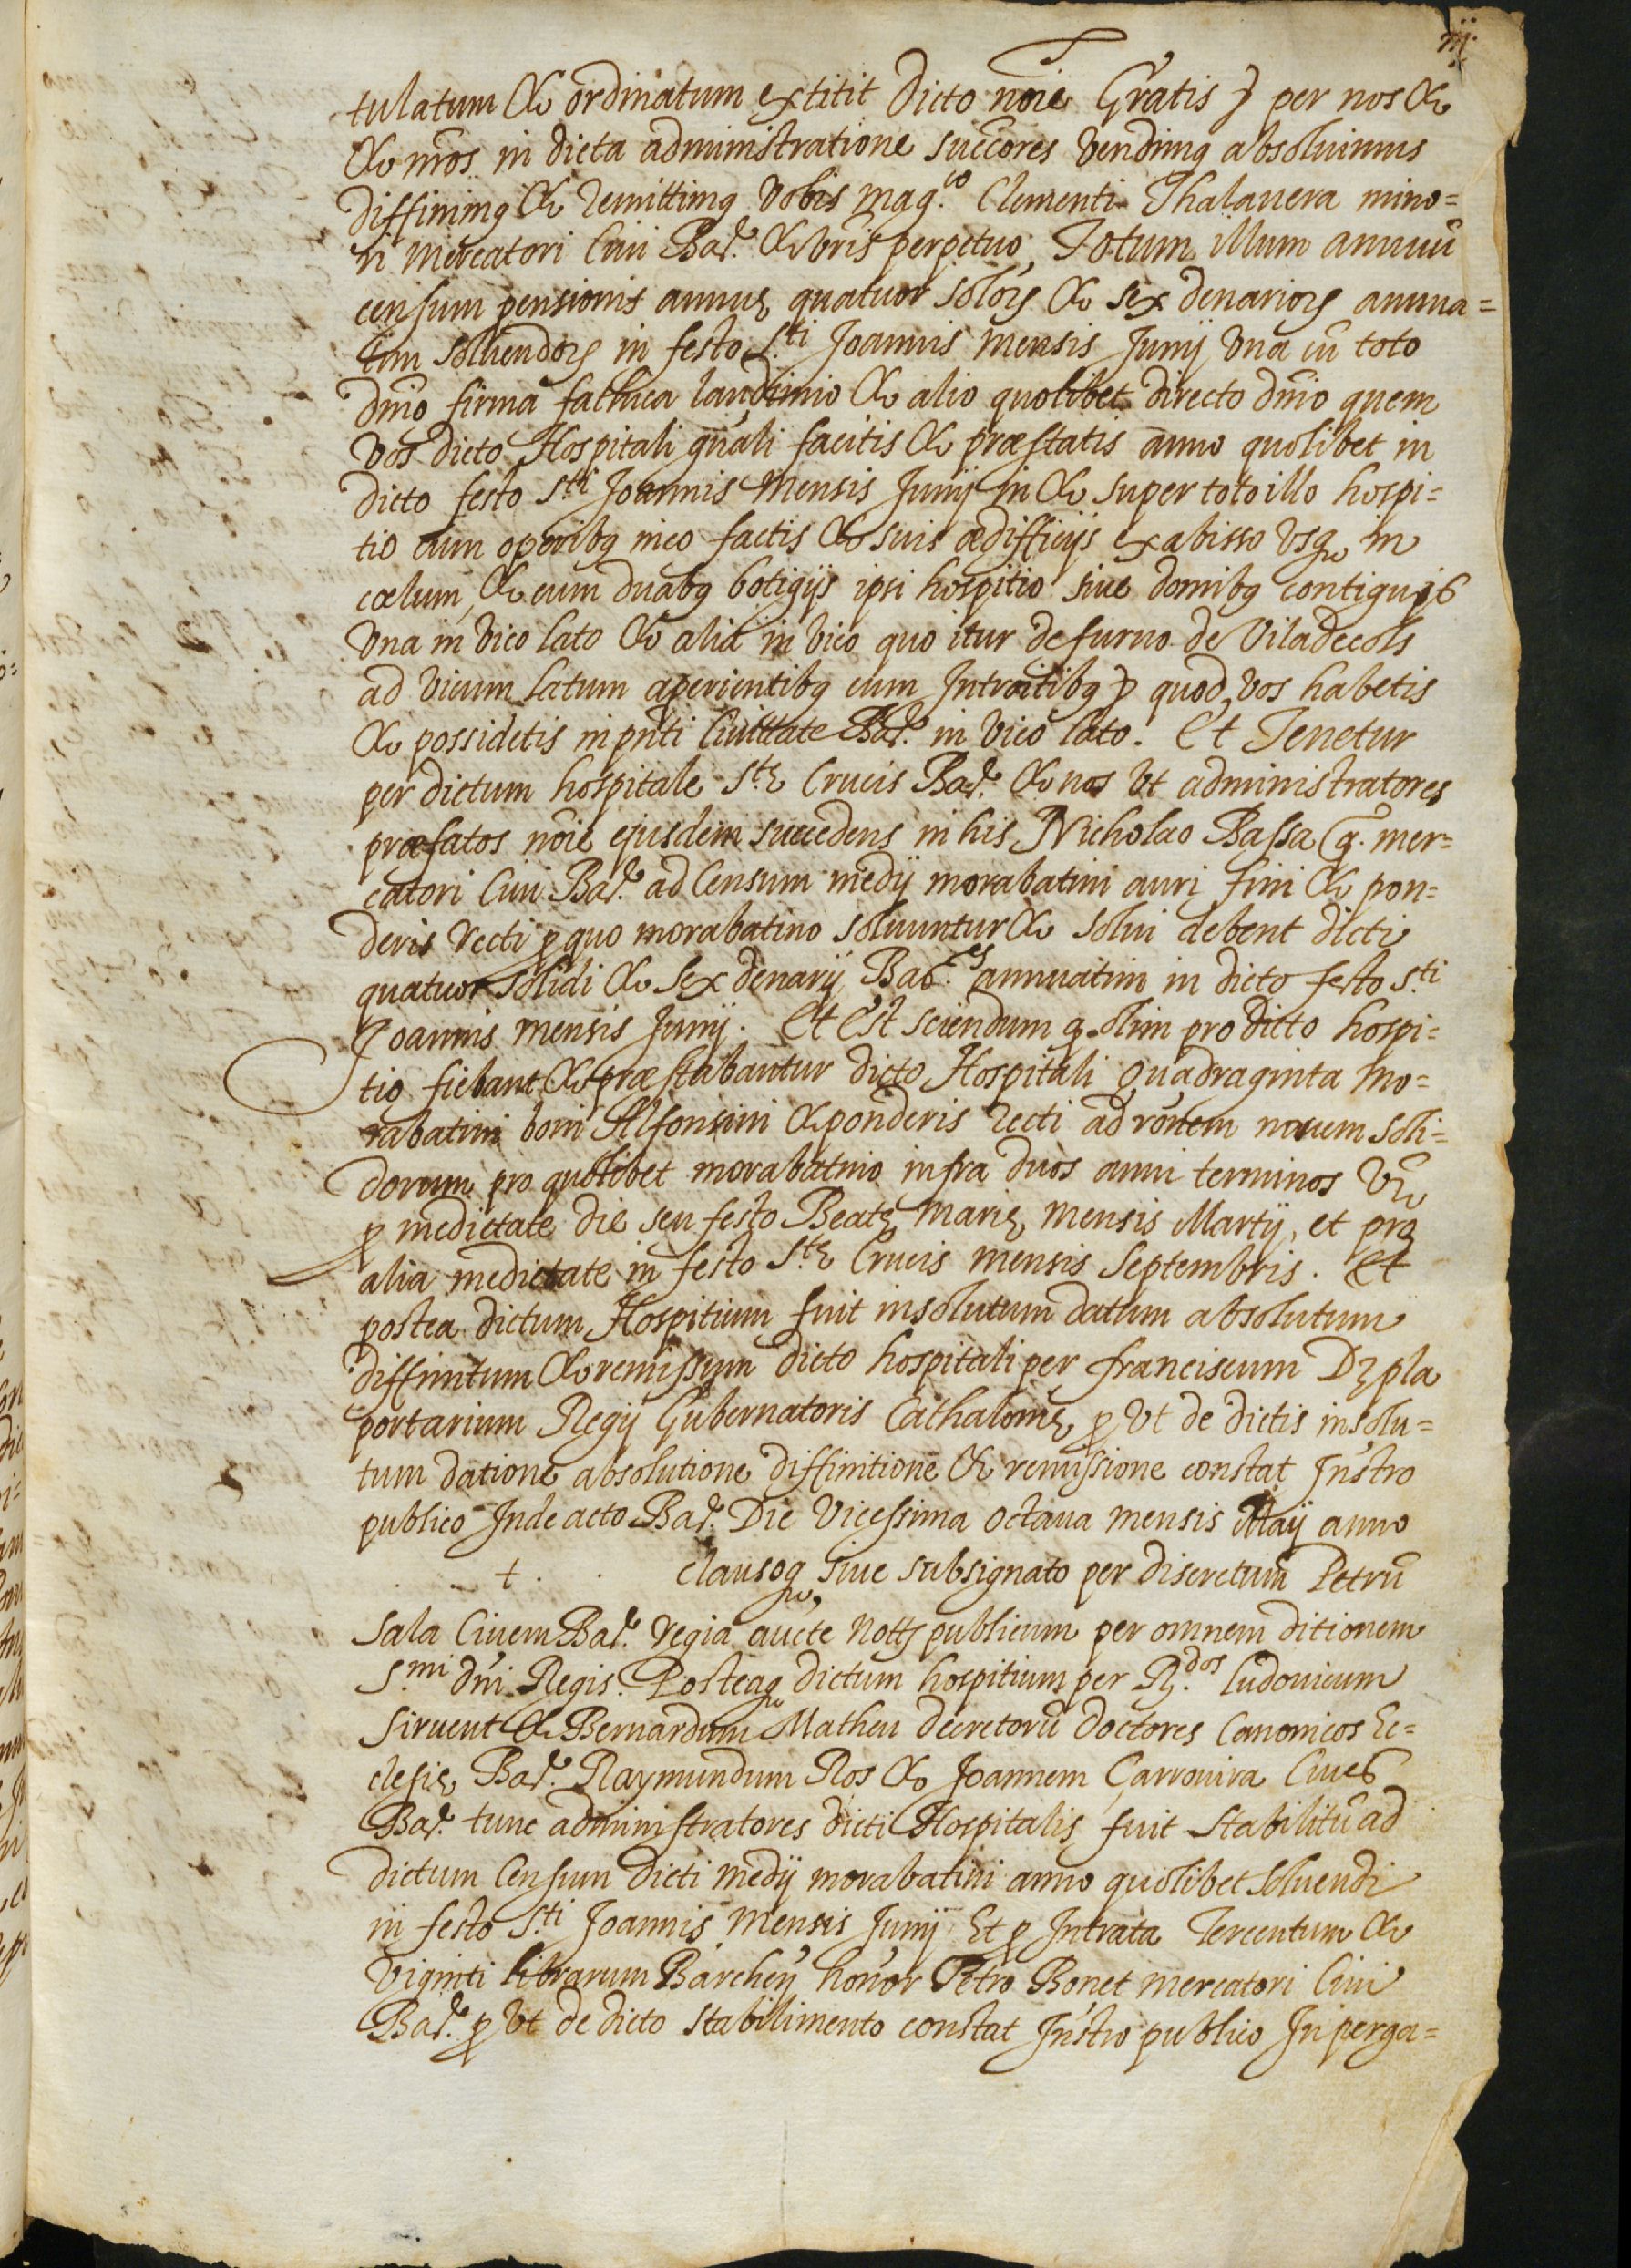 iij.
tulatum & ordinatum extitit dicto nōie Gratis &c per nos &
& nros in dicta administratione succores vendimꝰ absoluimus
diffinimꝰ & remittimꝰ vobis mag.co Clementi Thalauera mino=
ri mercatori Ciui Bar. & vris perpetuo, Totum illum annuū
censum pensionis annuę quatuor solorꝫ & sex denariorꝫ annua=
tim soluendorꝫ in festo S.ti Joannis mensis Junij vna cū toto
dnio firma fathica laudimio & alio quolibet directo dnio quem
vos dicto Hospitali gnali facitis & præstatis anno quolibet in
dicto festo S.ti Joannis mensis Junij in & super toto illo hospi=
tio cum operibꝰ in eo factis & suis ædifficijs ex abisso vsqꝫ in
cœlum, & cum duabꝰ botigijs ipsi hospitio siue domibꝰ contiguis
vna in vico lato & alia in vico quo itur de furno de Viladecols
ad vicum latum aperientibꝰ cum Introitibꝰ &c quod vos habetis
& possidetis in pnti Ciuitate Bar. in vico lato. Et Tenetur
per dictum hospitale S.tę Crucis Bar. & nos vt administratores
præfatos nōie ejusdem succedens in his Nicholao Bassa q.º mer=
catori Ciui Bar. ad Censum medij morabatini auri fini & pon=
deris recti ꝓ quo morabatino soluuntur & solui debent dicti
quatuor solidi & sex denarij Bar.es annuatim in dicto festo S.ti
Joannis mensis Junij. Et Est sciendum q. olim pro dicto hospi=
tio fiebant & præstabantur dicto Hospitali Quadraginta mo=
rabatini boni Alfonsini & ponderis recti ad rōnem nouem soli=
dorum pro quolibet morabatino infra duos anni terminos vꝫ
ꝓ medietate die seu festo Beatę Marię mensis Martij, et pro
alia medietate in festo S.tę Crucis mensis Septembris. Et
postea dictum Hospitium fuit insolutum datum absolutum
diffinitum & remissum dicto hospitali per franciscum Dꝫpla
portarium Regij Gubernatoris Cathalonię ꝓ vt de dictis insolu=
tum datione absolutione diffinitione & remissione constat Instro
publico Inde acto Bar. Die Vicessima octaua mensis Maij anno
. . + . . clausoqꝫ siue subsignato per discretum Petrū
Sala Ciuem Bar. regia aucte nottꝫ publicum per omnem ditionem
S.mi dni Regis. Posteaqꝫ dictum hospitium per R.dos ludouicum
Siruent & Bernardum Matheu decretorū Doctores Canonicos Ec=
clesię Bar. Raymundum Ros & Joannem Çarrouira Ciues
Bar. tunc administratores dicti Hospitalis fuit stabilitū ad
dictum Censum dicti medij morabatini anno quolibet soluendi
in festo S.ti Joannis mensis Junij Et ꝓ Intrata Tercentum &
viginti librarum Barchen honor Petro Bonet mercatori Ciui
Bar. ꝓ vt de dicto stabilimento constat Instro publico In perga=